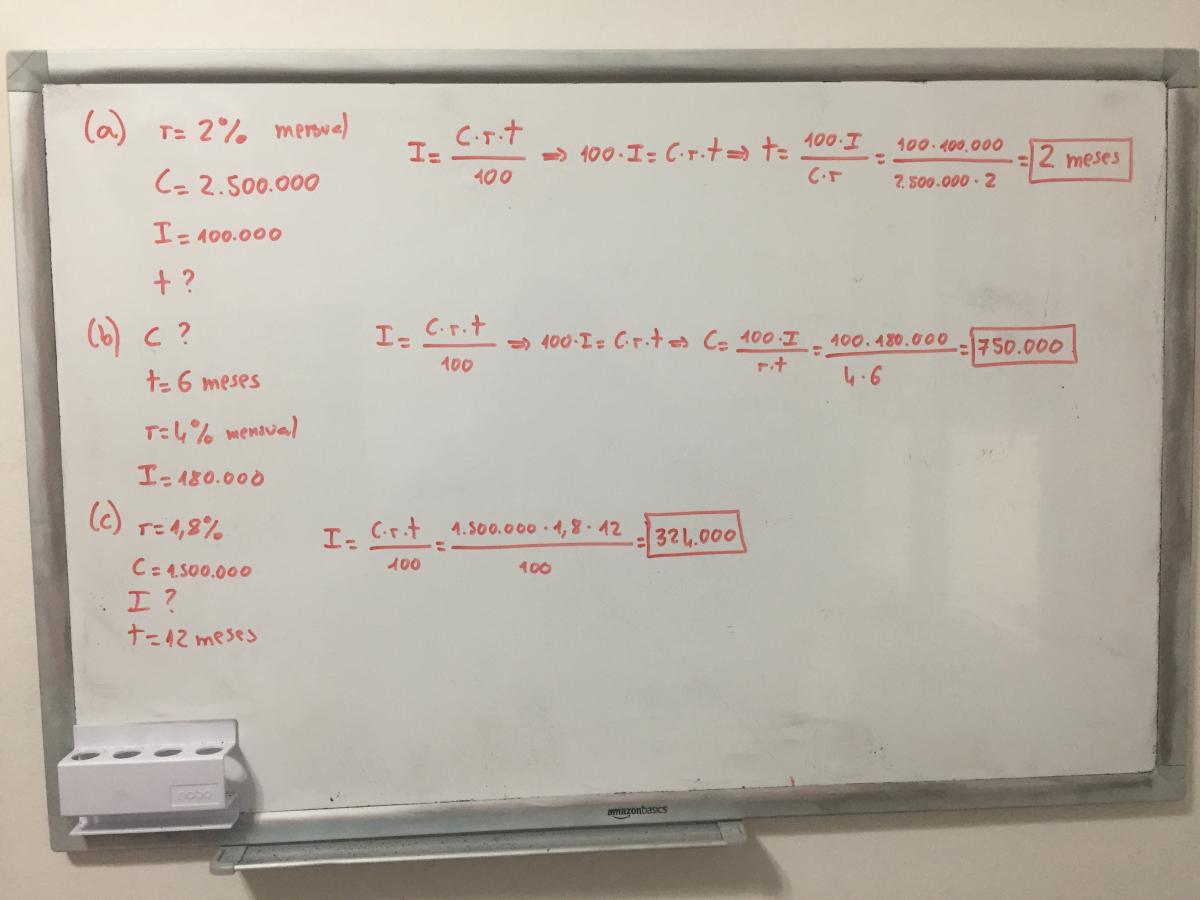 (a) r= 2% mensual
C= 2.500.000
I= 100.000
t ?
I= C.r.t / 100 ⇒ 100.I= C.r.t ⇒ t= 100.I / C.r = 100.100.000 / 2.500.000.2 = 2 meses
(b) C ?
t= 6 meses
r= 4% mensual
I= 180.000
I= C.r.t / 100 ⇒ 100.I= C.r.t ⇒ C= 100.I / r.t = 100.180.000 / 4.6 = 750.000
(c) r= 1,8%
C= 1.500.000
I ?
t= 12 meses
I= C.r.t / 100 = 1.500.000.1,8.12 / 100 = 324.000
nobo
amazonbasics